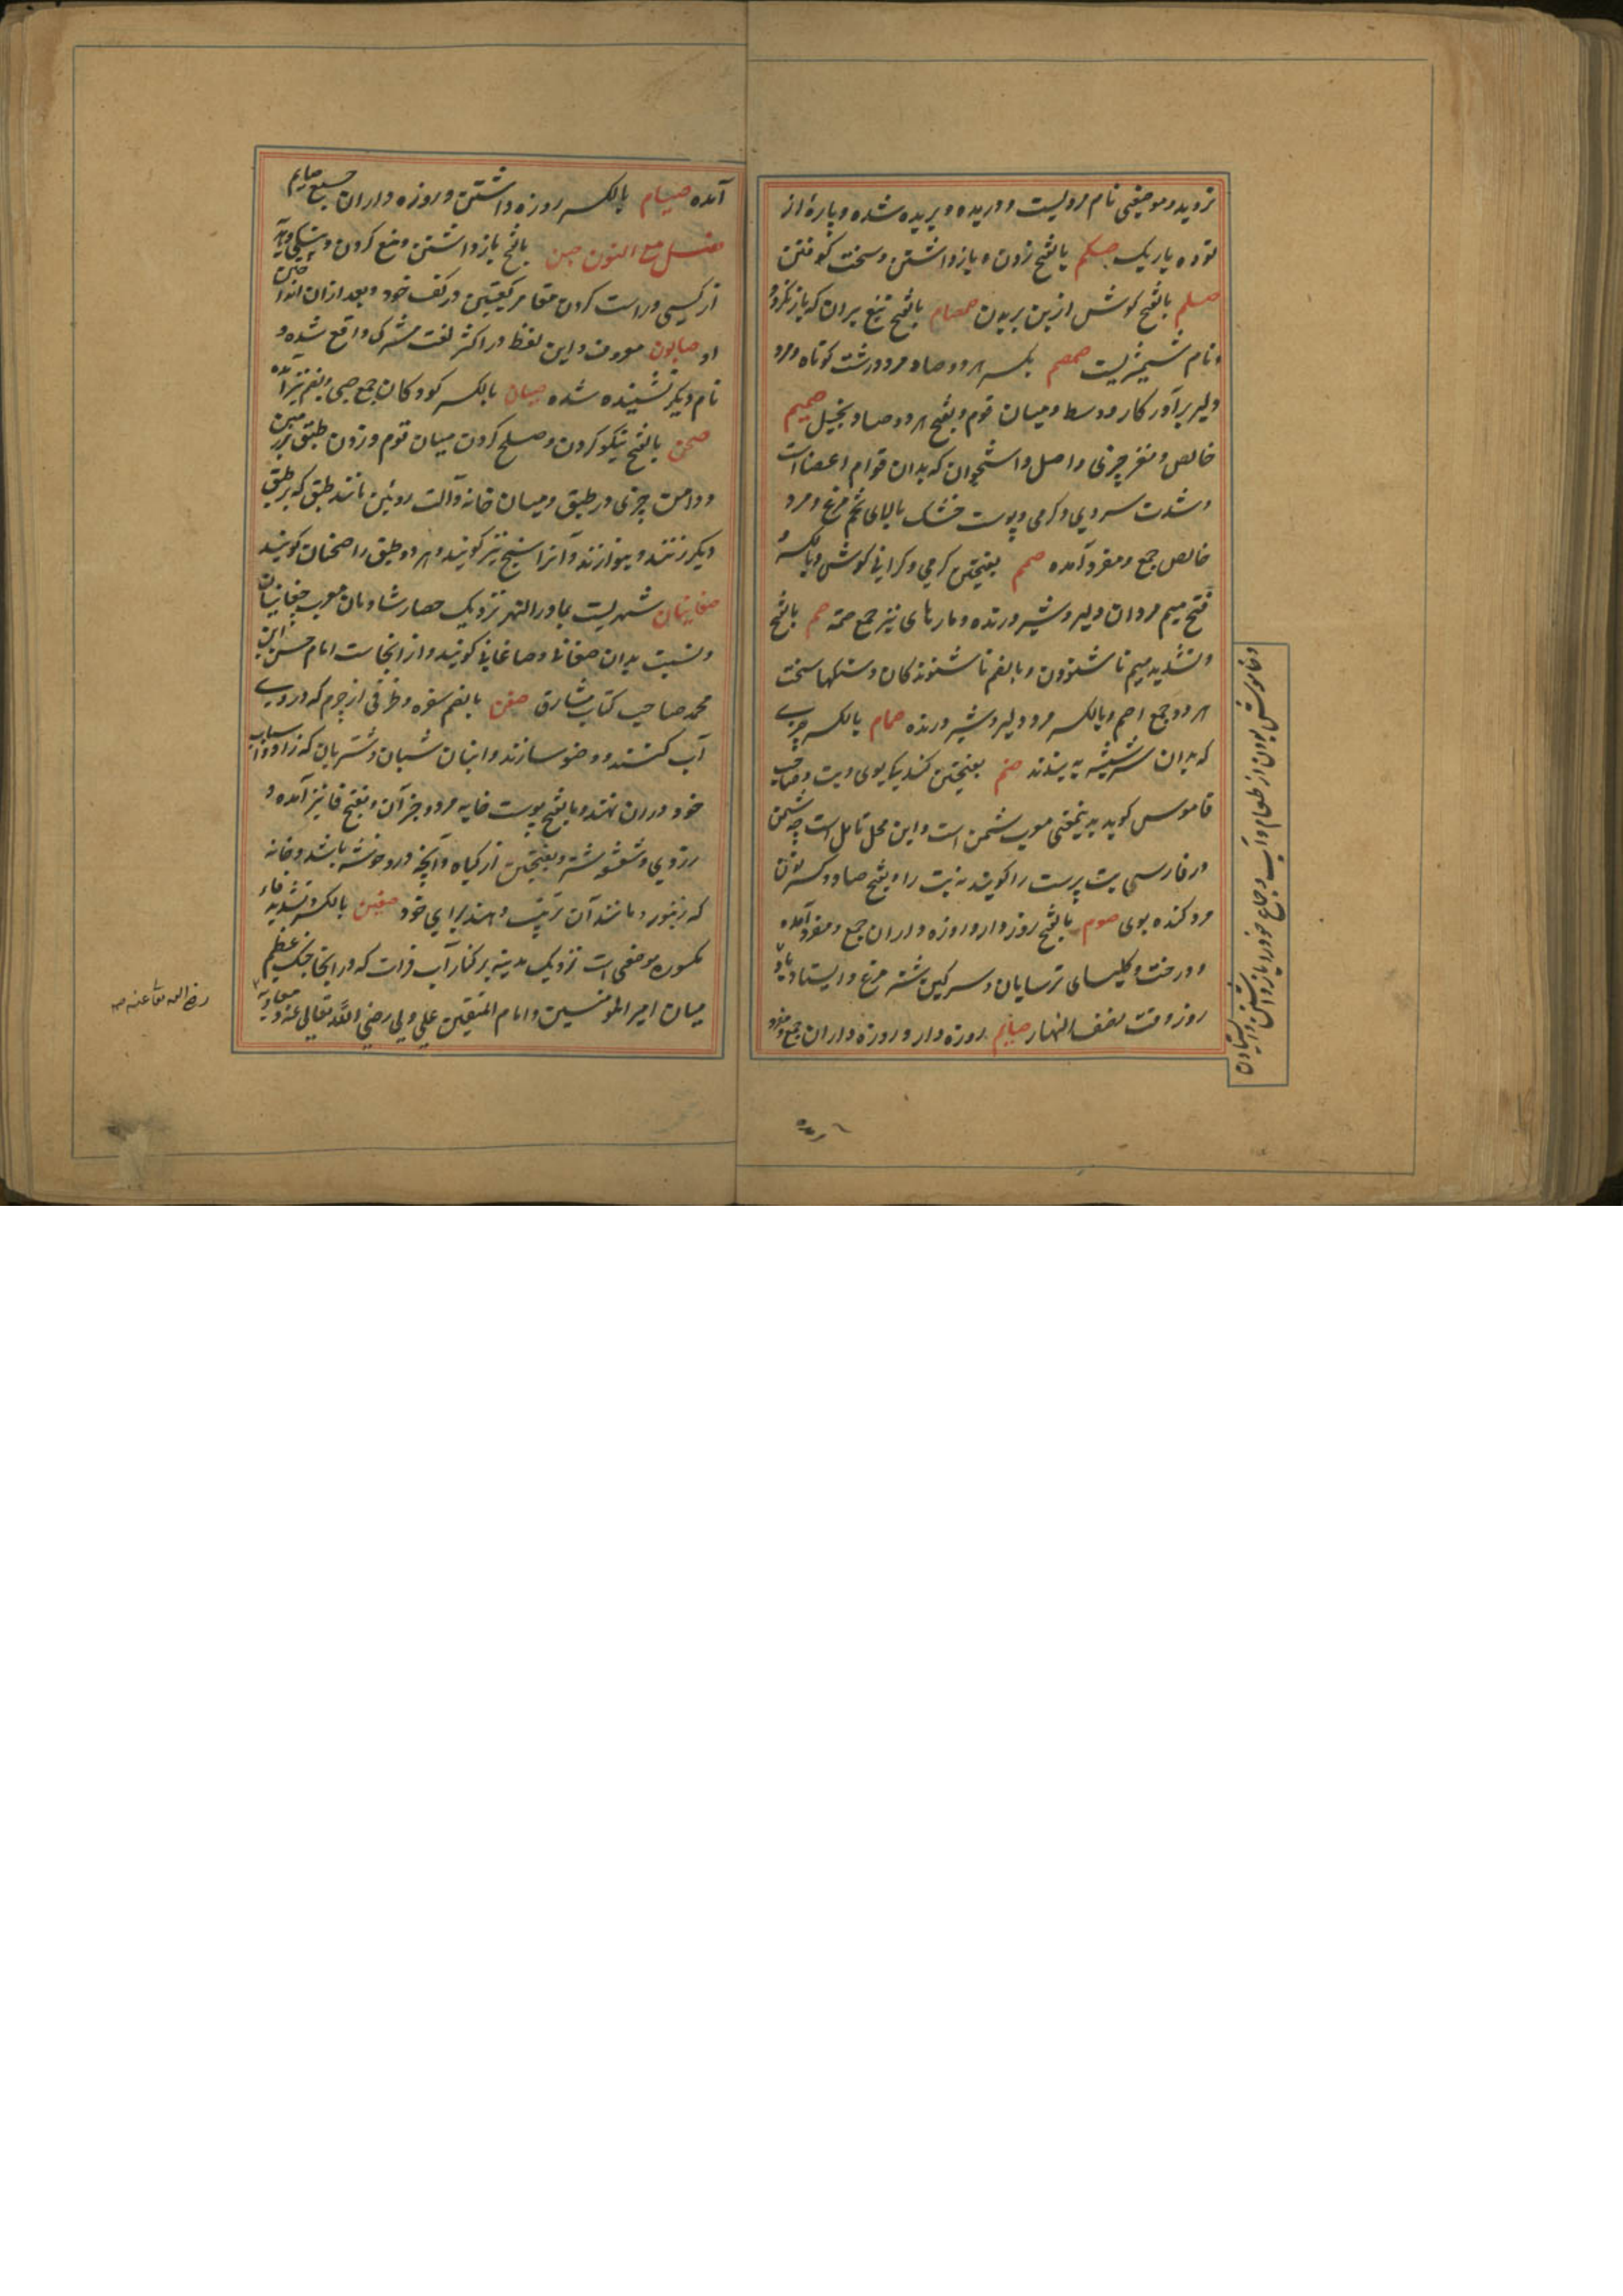 نزدید و موضعی نام مردیست و دریده و بریده شده و پارهٔ از
توده باریک صکم بالفتح زدن و بازداشتن و سخت کوفتن
صلم بالفتح کوش از بن بریدن صمصام بالفتح تیغ بران که باز نکردد
و نام شمشیریست صمصم بکسر هر دو صاد مرد درشت کوتاه و مرد
دلیر برآور کار و وسط و میان قوم و بفتح هر دو صاد و بخیل صمیم
خالص و مغز چیزی و اصل و استخوان که بدان قوام اعضا است
و شدت سردی و کرمی و پوست خشک بالای تخم مرغ و مرد
خالص جمع و مفرد آمده صمم بفتحتین کرمی و کرانی کوش و بالکسر و
فتح میم مردان دلیر و شیر درنده و مارهای نیز جمع صمه صم بالفتح
و تشدید میم ناشنودن و بالضم ناشنوندکان و سنکها سخت
هر دو جمع اصم و بالکسر مرد دلیر و شیر درنده صمام بالکسر چوبی
که بدان سر شیشه به بندند صنم بفتحتین کندیکی بوی و بت و صاحب
قاموس کوید بدینمعنی معرب شمن است و این محل تامل است چه شمن
در فارسی بت پرست را کویند نه بت را و بفتح صاد و کسر نون
مرد کنده بوی صوم بالفتح روزه دار و روزه داران جمع و مفرد آمده
و درخت و کلیسای ترسایان و سرکین شتر مرغ و ایستادن باد
روز وقت نصف النهار صایم روزه دار و روزه داران جمع و مفرد
و خاموش بودن از طعام و آب و جماع خود را باز داشتن و ایستادن
آمده صیام بالکسر روزه داشتن و روزه داران جمع صایم
فصل مع النون صبن بالفتح باز داشتن و منع کردن و نیکی و هدیه
از کسی و راست کردن مقامر کعبتین در کف خود و بعد از ان انداختن
او صابون معروف و این لفظ در اکثر لغت مشترک واقع شده و
نام دیکر نشنیده شده صبیان بالکسر کودکان جمع صبی و بضم نیز آمده
صحن بالفتح نیکو کردن و صلح کردن میان قوم و زدن طبق بر زمین
و دادن چیزی در طبق و میان خانه و آلت روئین مانند طبق که بر طبق
دیکر زنند و بنوازند و آنرا سنج نیز کویند و هر دو طبق را صحنان کویند
صغانیان شهریست بماورالنهر نزدیک حصار شادمان معرب چغانیان
و نسبت بدان صغانی و صاغانی کویند و از انجاست امام حسن ابن
محمد صاحب کتاب مشارق صفن بالضم سفره و ظرفی از چرم که در وی
آب کنند و وضو سازند و انبان شبان و شتربان که زاد و اسباب
خود در ان نهند و بالفتح پوست خایه مرد و جز آن و بفتح فا نیز آمده و
رزوی و ششقه شتر و بفتحتین از کیاه و آنچه در و خوشه باشد و خانه
که زنبور و مانند آن ترتیب دهند برای خود صفین بالکسر و تشدید فاء
مکسوره موضعی است نزدیک مدینه بر کنار آب فرات که در انجا جنک عظیم
میان امیر المومنین و امام المتقین علی ولی رضی الله تعالی عنه و معاویه
رضی الله تعا عنه